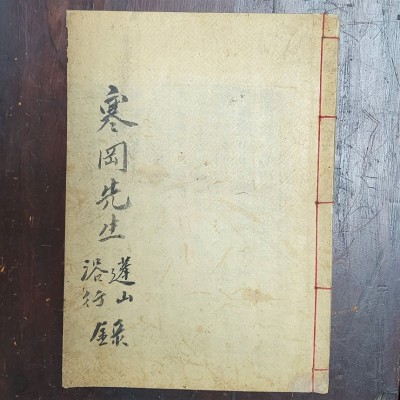 寒岡先生
蓬山
浴行
錄